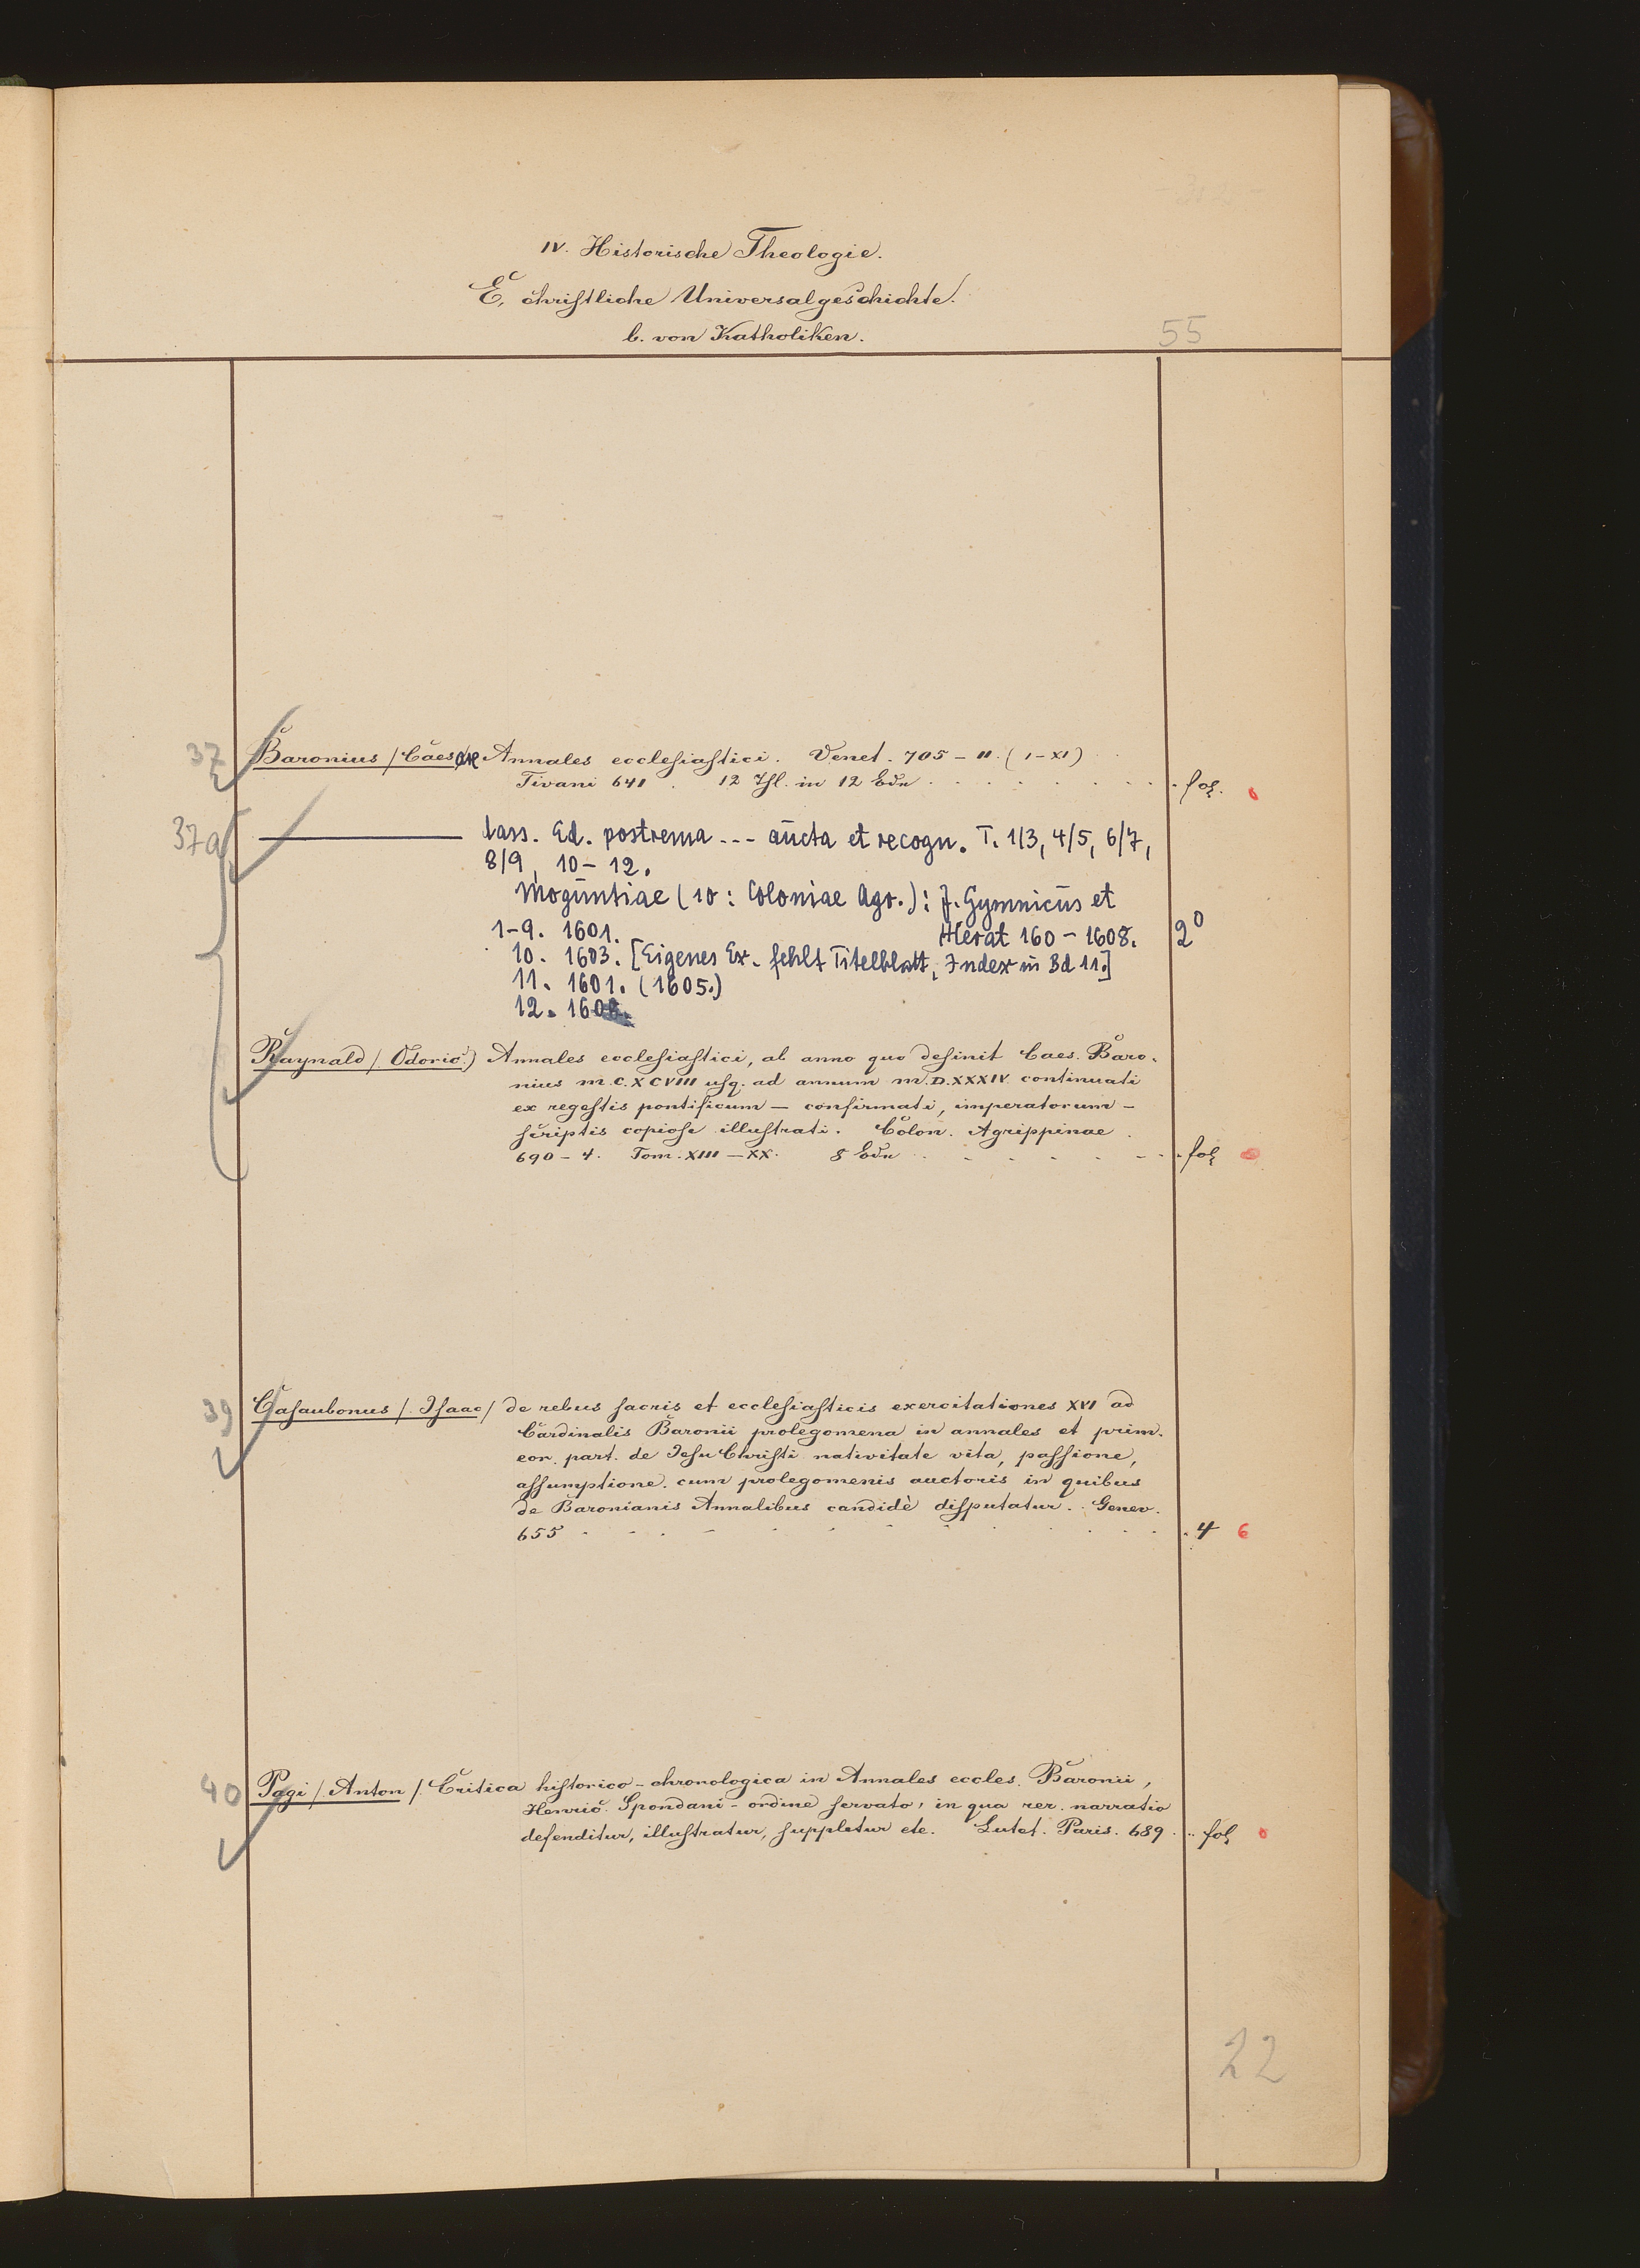 IV. Historische Theologie.
E, christliche Universalgeschichte.
b. von Katholiken.
55
37 Baronius /Caesar Annales ecclesiastici. Venet. 705-11. (I-XI)
Tivani 641. 12 Thl. in 12 Bdn fol.
37a ——— dass. Ed. postrema --- aucta et recogn. T. 1/3, 4/5, 6/7,
8/9, 10-12.
Moguntiae (10: Coloniae Agr.): J. Gymnicus et
1-9. 1601. Hierat 160-1608. 2°
10. 1603. [Eigenes Ex. fehlt Titelblatt, Index in Bd 11.]
11. 1601. (1605.)
12. 1608.
Raynald /Odoric.) Annales ecclesiastici, ab anno quo desinit Caes. Baro-
nius M.C.XCVIII usq. ad annum M.D.XXXIV continuati
ex regestis pontificum — confirmati, imperatorum —
scriptis copiose illustrati. Colon. Agrippinae
690-4. Tom. XIII-XX. 8 Bdn fol
39 Casaubonus /Isaac/ de rebus sacris et ecclesiasticis exercitationes XVI ad
Cardinalis Baronii prolegomena in annales et prim.
eor. part. de Jesu Christi nativitate vita, passione,
assumptione. cum prolegomenis auctoris in quibus
de Baronianis Annalibus candidè disputatur. Genev.
655 4 6
40 Pagi /Anton/ Critica historico-chronologica in Annales eccles. Baronii,
Henric. Spondani - ordine servato, in qua rer. narratio
defenditur, illustratur, suppletur etc. Lutet. Paris. 689. fol
22